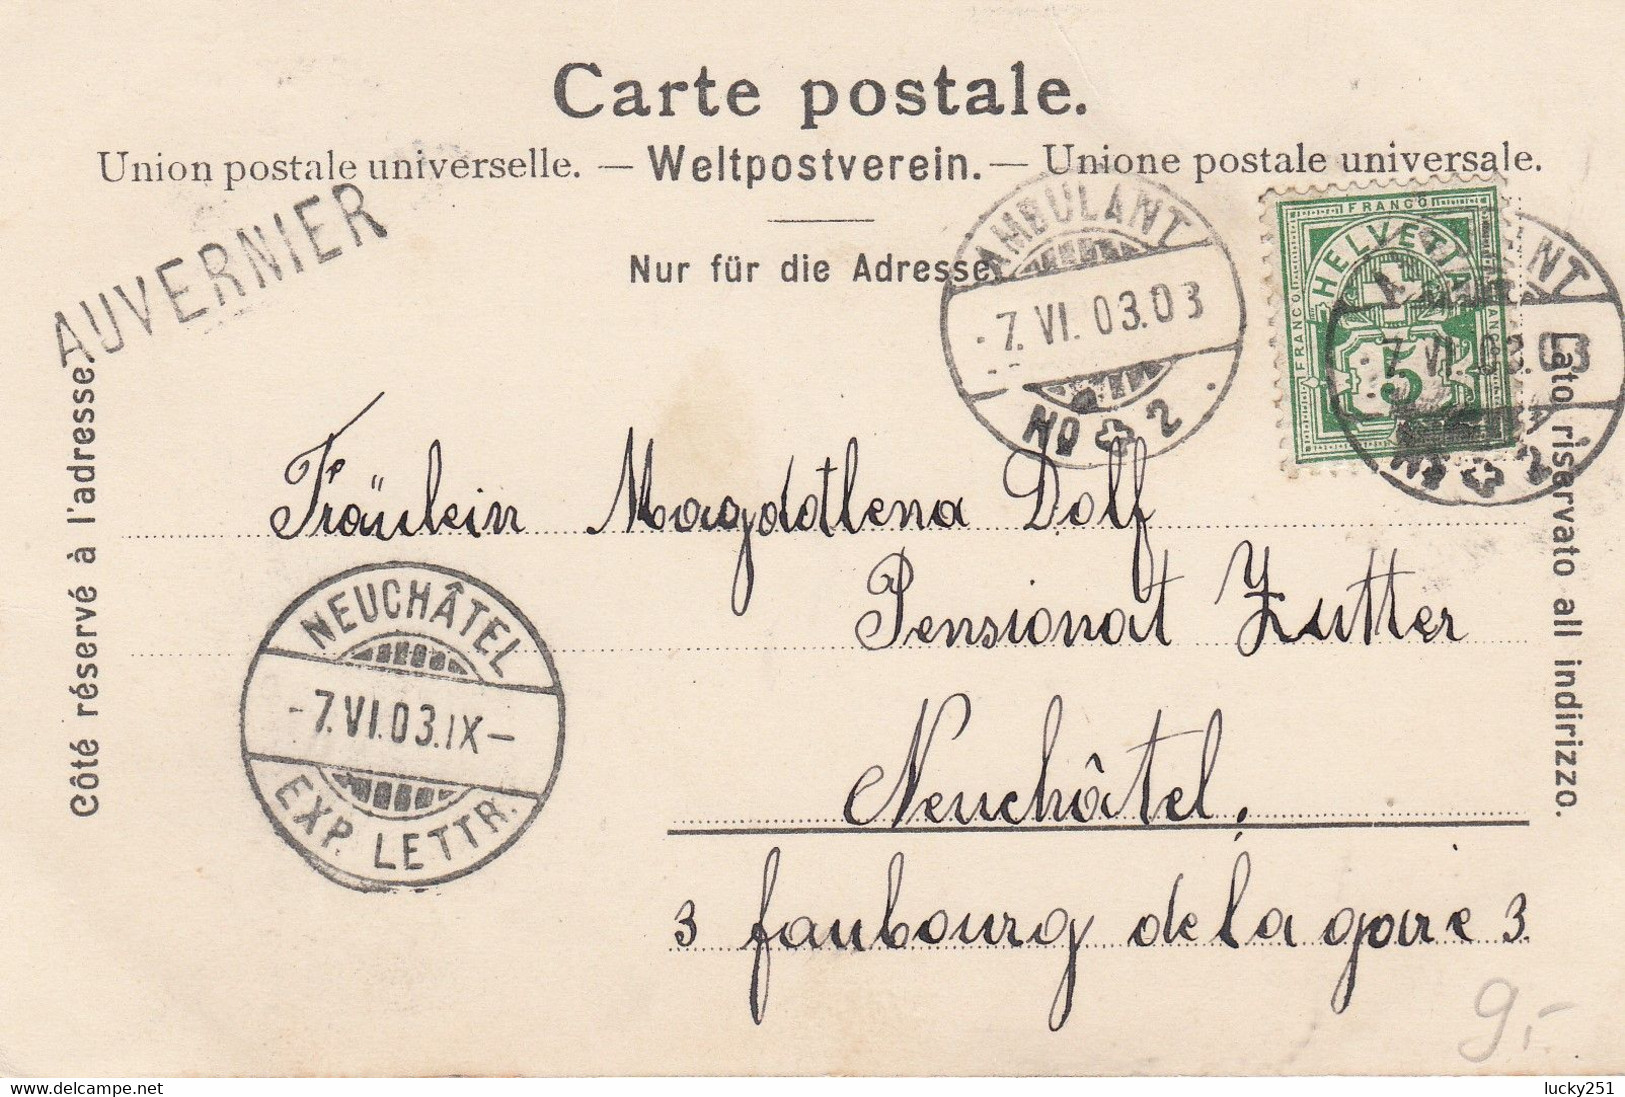 Carte postale.
Union postale universelle. — Weltpostverein. — Unione postale universale.
AUVERNIER
Nur für die Adresse
AMBULANT
-7. VI. 03. 03
No 2.
FRANCO
HELVETIA
FRANCO
5
-7. VI. 03.
No 2
Côté réservé à l'adresse.
Lato riservato all indirizzo.
Fräulein Magdatlena Dolf
Pensionat Zutter
Neuchâtel.
3 faubourg de la gare 3.
NEUCHÂTEL
-7. VI. 03. IX-
EXP. LETTR.
9.-
delcampe.net
lucky251